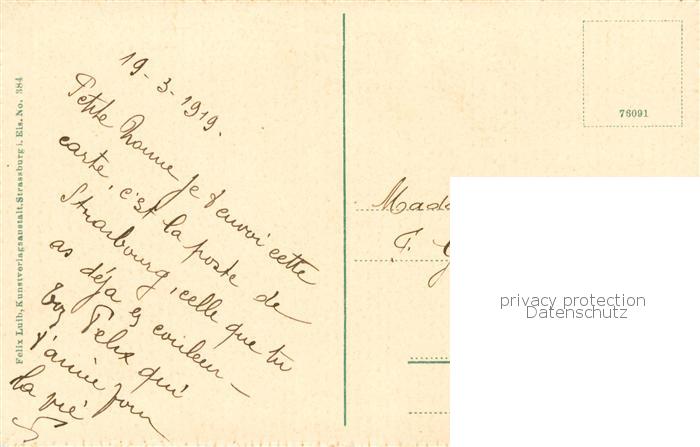 19-3-1919.
Petite Nonne je t'envoi cette
carte, c'est la poste de
Strasbourg, celle que tu
as déja es couleur -
Ton Felix qui
t'aime pour
la vie
Felix Luib, Kunstverlagsanstalt, Strassburg i. Els. No. 384
76091
Mada
F. G
privacy protection
Datenschutz